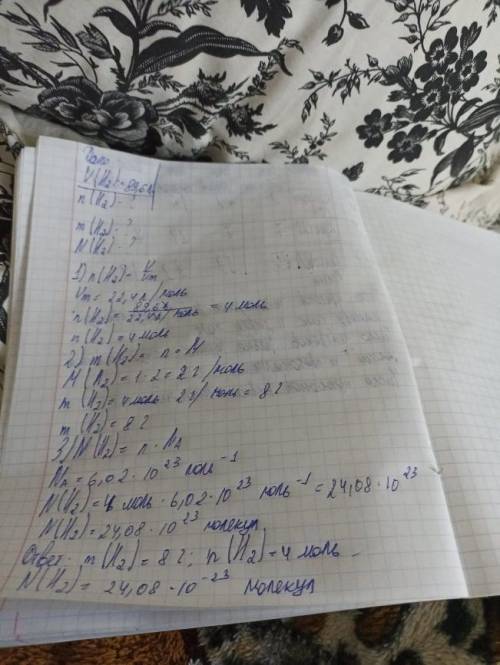 Дано
V(H₂) = 89,6 л
n(H₂) - ?
m(H₂) - ?
N(H₂) - ?
1) n(H₂) = V/Vm
Vm = 22,4 л/моль
n(H₂) = 89,6л/22,4л/моль = 4 моль
n(H₂) = 4 моль
2) m(H₂) = n · M
M(H₂) = 1 · 2 = 2 г/моль
m(H₂) = 4 моль · 2 г/моль = 8 г
m(H₂) = 8 г
3) N(H₂) = n · Nₐ
Nₐ = 6,02 · 10²³ моль⁻¹
N(H₂) = 4 моль · 6,02 · 10²³ моль⁻¹ = 24,08 · 10²³
N(H₂) = 24,08 · 10²³ молекул
Ответ: m(H₂) = 8 г; n(H₂) = 4 моль
N(H₂) = 24,08 · 10⁻²³ молекул